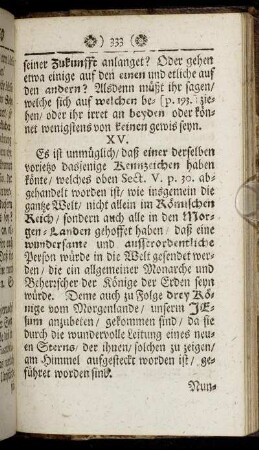 333
seiner Zukunfft anlanget? Oder gehen
etwa einige auf den einen und etliche auf
den andern? Alsdenn müßt ihr sagen/
welche sich auf welchen be- [p. 193. zie-
hen/ oder ihr irret an beyden oder kön-
net wenigstens von keinen gewis seyn.
XV.
Es ist unmüglich/ daß einer derselben
vorietzo dasjenige Kennzeichen haben
könte/ welches oben Sect. V. p. 30. ab-
gehandelt worden ist/ wie insgemein die
gantze Welt/ nicht allein im Römischen
Reich/ sondern auch alle in den Mor-
gen-Landen gehoffet haben/ daß eine
wundersame und ausserordentliche
Person würde in die Welt gesendet wer-
den/ die ein allgemeiner Monarche und
Beherrscher der Könige der Erden seyn
würde. Deme auch zu Folge drey Kö-
nige vom Morgenlande/ unsern JE-
sum anzubeten/ gekommen sind/ da sie
durch die wundervolle Leitung eines neu-
en Sterns/ der ihnen/ solchen zu zeigen/
am Himmel aufgesteckt worden ist/ ge-
führet worden sind.
Nun-